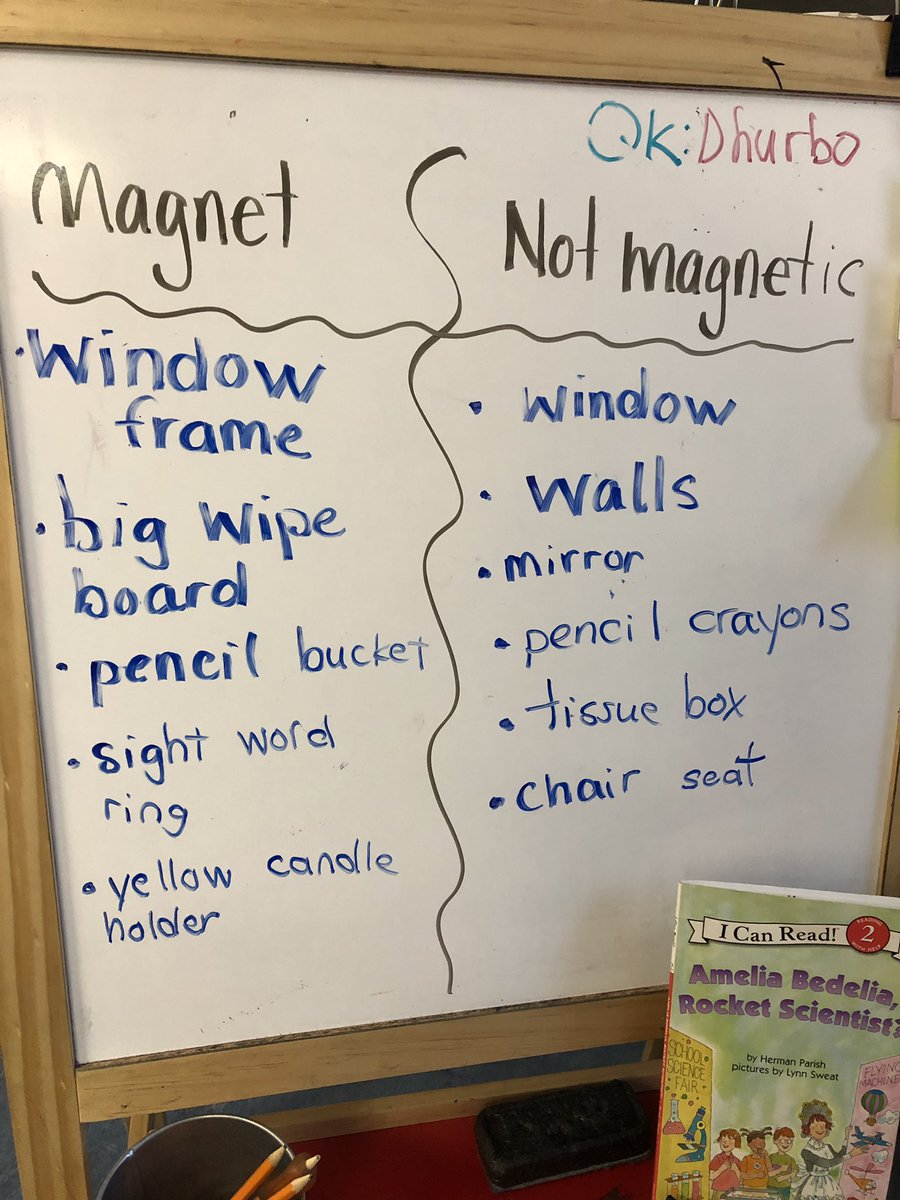 QK: Dhurbo
Magnet
Not magnetic
• Window
frame
• big wipe
board
• pencil bucket
• sight word
ring
• yellow candle
holder
• window
• walls
• mirror
• pencil crayons
• tissue box
• chair seat
I Can Read!
READING
WITH HELP
2
Amelia Bedelia,
Rocket Scientist?
by Herman Parish
pictures by Lynn Sweat
SCHOOL
SCIENCE
FAIR
FLYING
MACHINE